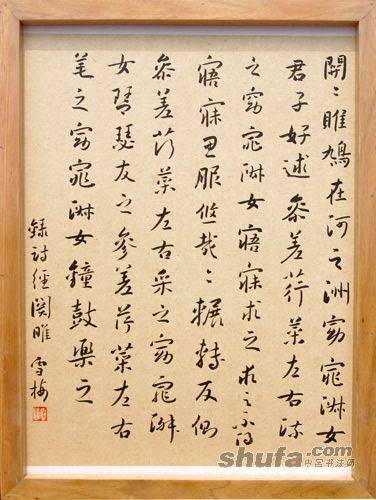 關〻雎鳩在河之洲窈窕淑女
君子好逑參差荇菜左右流
之窈窕淑女寤寐求之求之不得
寤寐思服悠哉〻輾轉反側
參差荇菜左右采之窈窕淑
女琴瑟友之參差荇菜左右
芼之窈窕淑女鐘鼓樂之
錄詩經関雎 雪梅
shufa.com